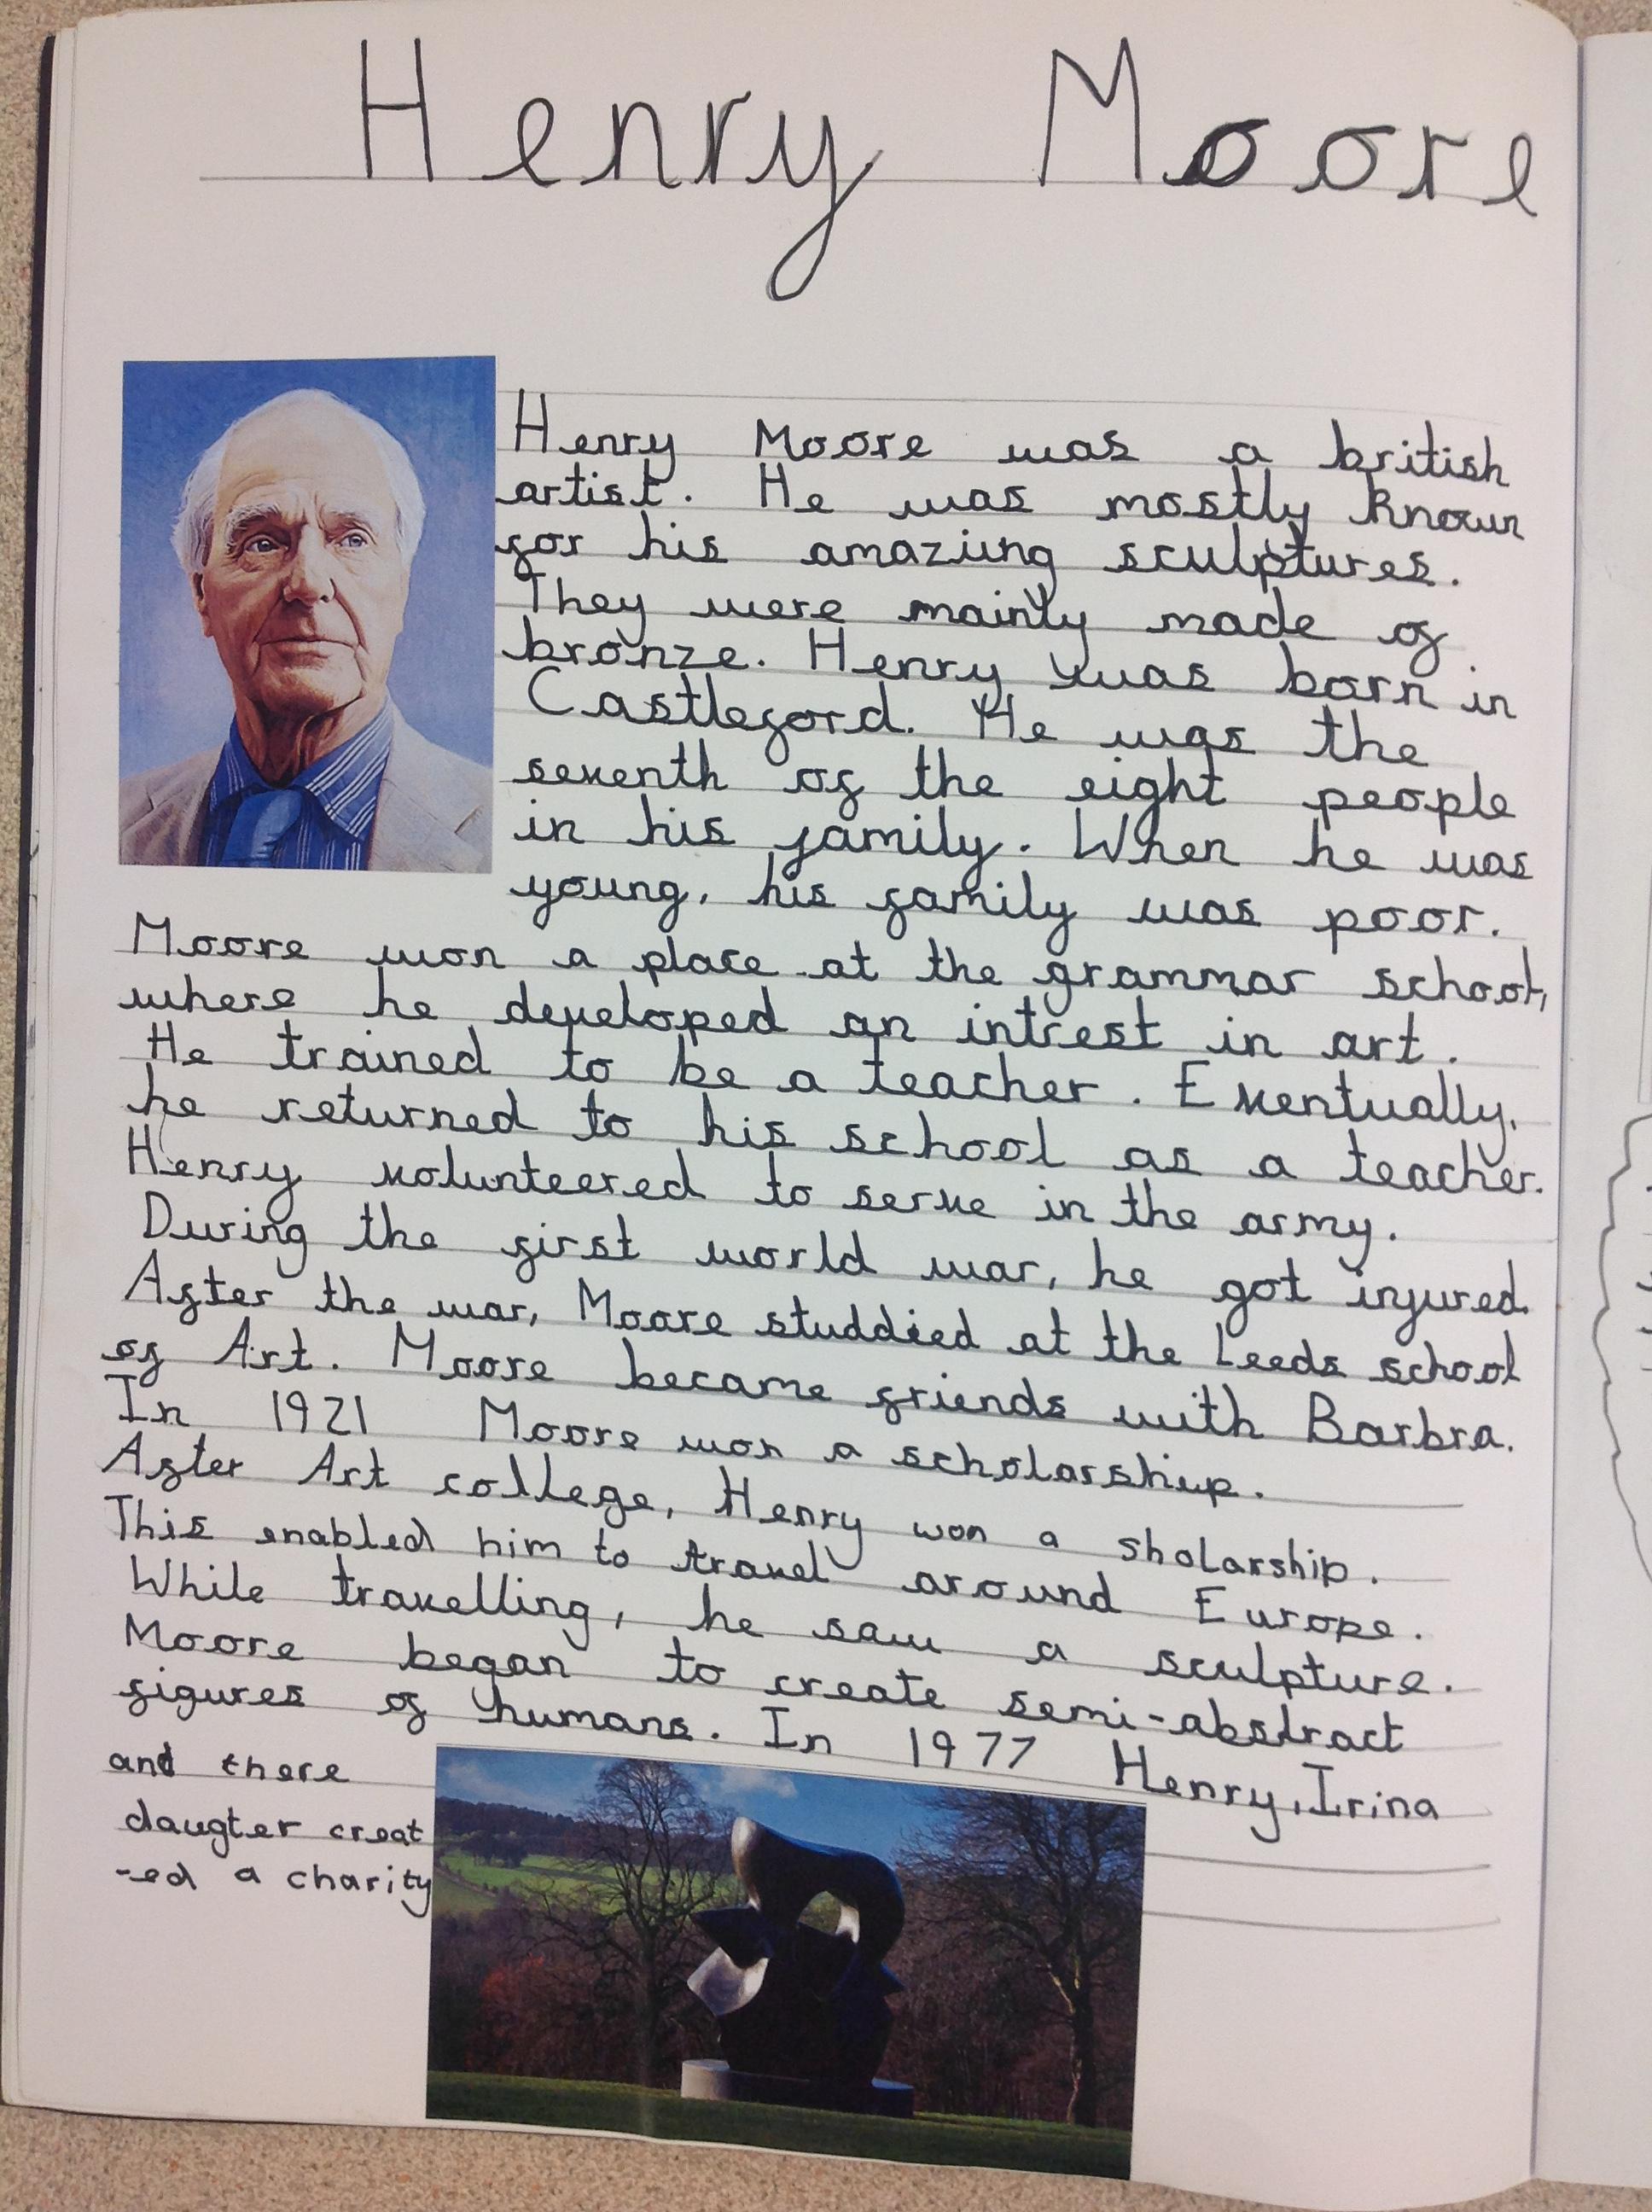 Henry Moore
Henry Moore was a british
artist. He was mostly known
for his amazing sculptures.
They were mainly made of
bronze. Henry was born in
Castleford. He was the
seventh of the eight people
in his family. When he was
young, his family was poor.
Moore won a place at the grammar school,
where he developed an intrest in art.
He trained to be a teacher. Eventually,
he returned to his school as a teacher.
Henry volunteered to serve in the army.
During the first world war, he got injured.
After the war, Moore studdied at the Leeds school
of Art. Moore became friends with Barbra.
In 1921 Moore won a scholarship.
After Art college, Henry won a sholarship.
This enabled him to travel around Europe.
While travelling, he saw a sculpture.
Moore began to create semi-abstract
figures of humans. In 1977 Henry, Irina
and there
daugter creat
-ed a charity